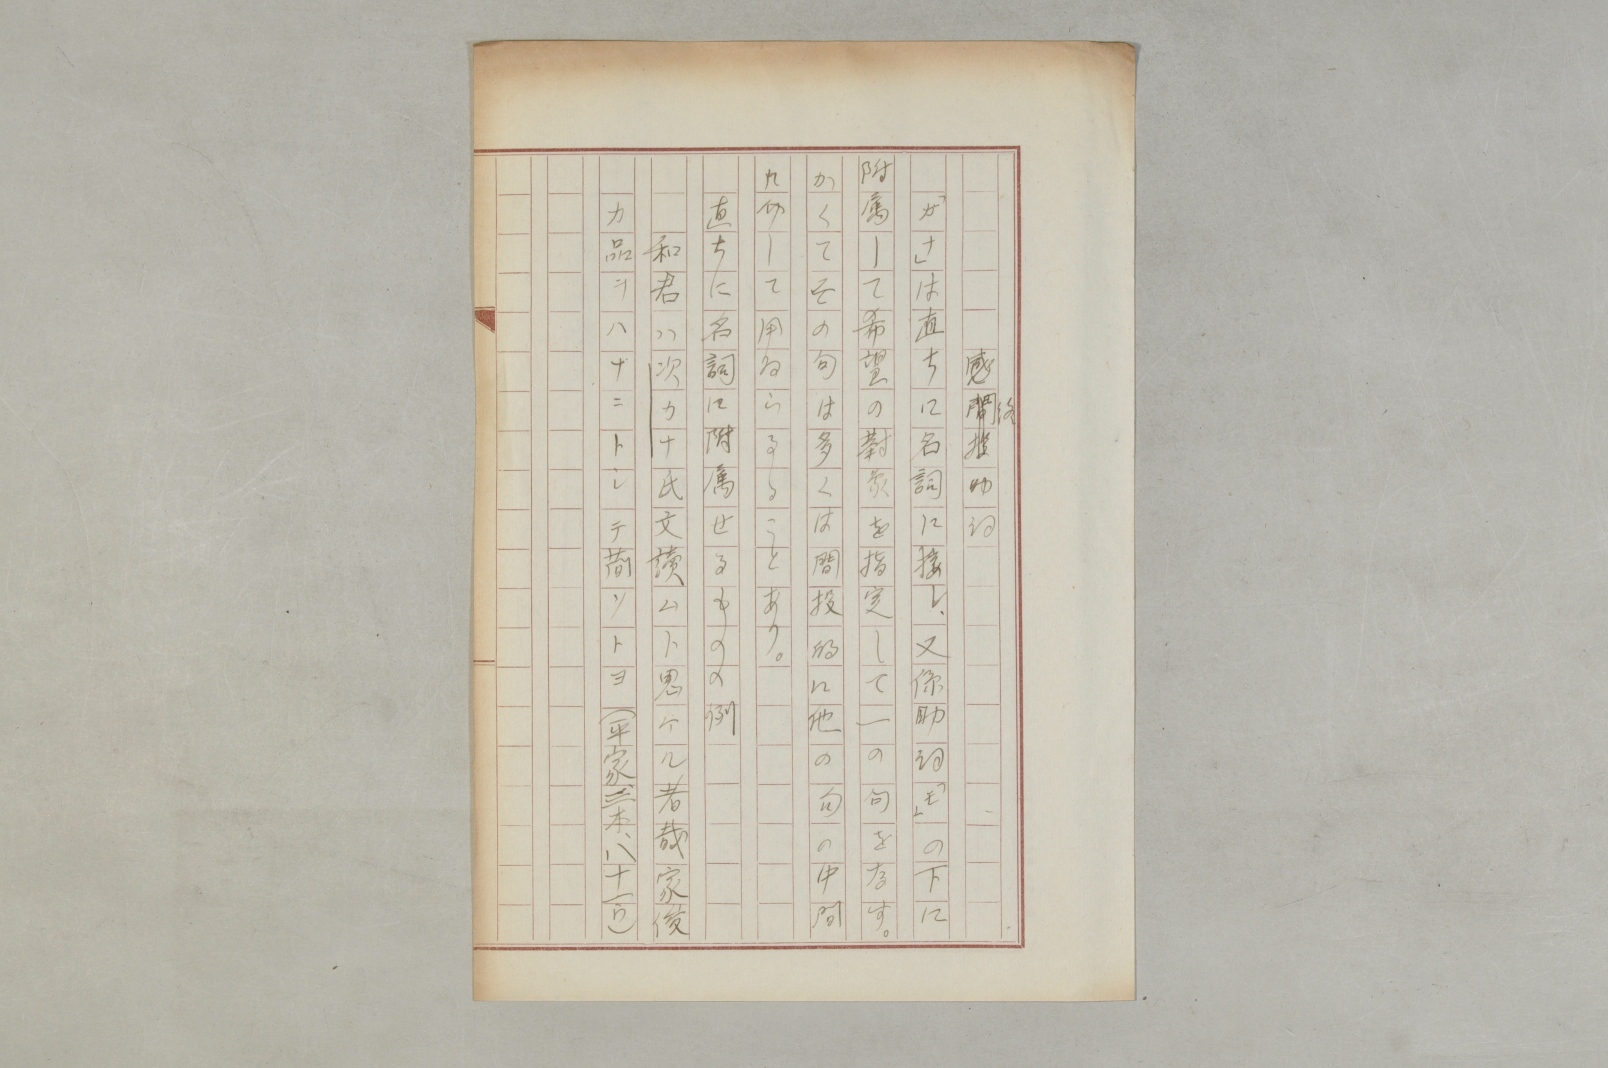 感間投助詞
終
「ガナ」は直ちに名詞に接し、又係助詞「モ」の下に
附属して希望の對象を指定して一の句をなす。
かくてその句は多くは間投的に他の句の中間
に介して用ゐらるることあり。
直ちに名詞に附属せるものの例
和君ハ次カナ氏文讀ムト思ケル者哉家俊
カ品ヲハナニトシテ簡ソトヨ(平家、三本、八十一ウ)